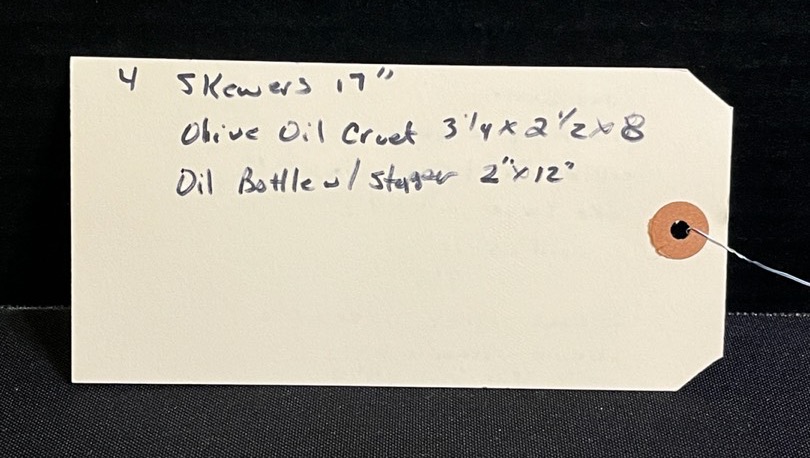 4 Skewers 17"
Olive Oil Cruet 3 1/4 x 2 1/2 x 8
Oil Bottle w/ 2" x 12"